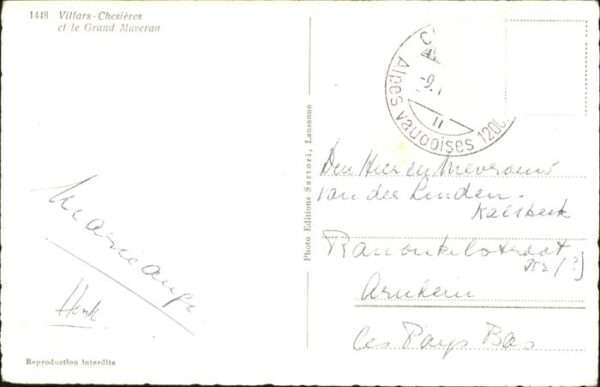 1448 Villars-Chesières
et le Grand Muveran
Alpes vaudoises 1200
-9.
II
Photo Editions Sartori, Lausanne
Den Heer en Mevrouw
van der Linden-
Kalsbeek
Nr (?)
Arnhem
Les Pays Bas
Henk
Reproduction interdite